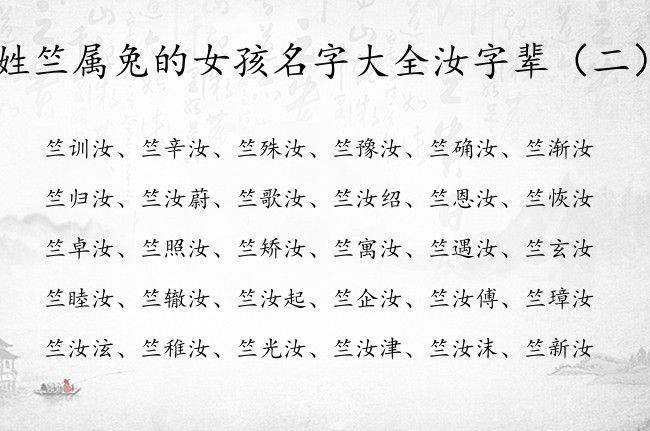 姓竺属兔的女孩名字大全汝字辈（二）
竺训汝、竺辛汝、竺殊汝、竺豫汝、竺确汝、竺渐汝
竺归汝、竺汝蔚、竺歌汝、竺汝绍、竺恩汝、竺恢汝
竺卓汝、竺照汝、竺矫汝、竺寓汝、竺遇汝、竺玄汝
竺睦汝、竺辙汝、竺汝起、竺企汝、竺汝傅、竺璋汝
竺汝泫、竺稚汝、竺光汝、竺汝津、竺汝沫、竺新汝